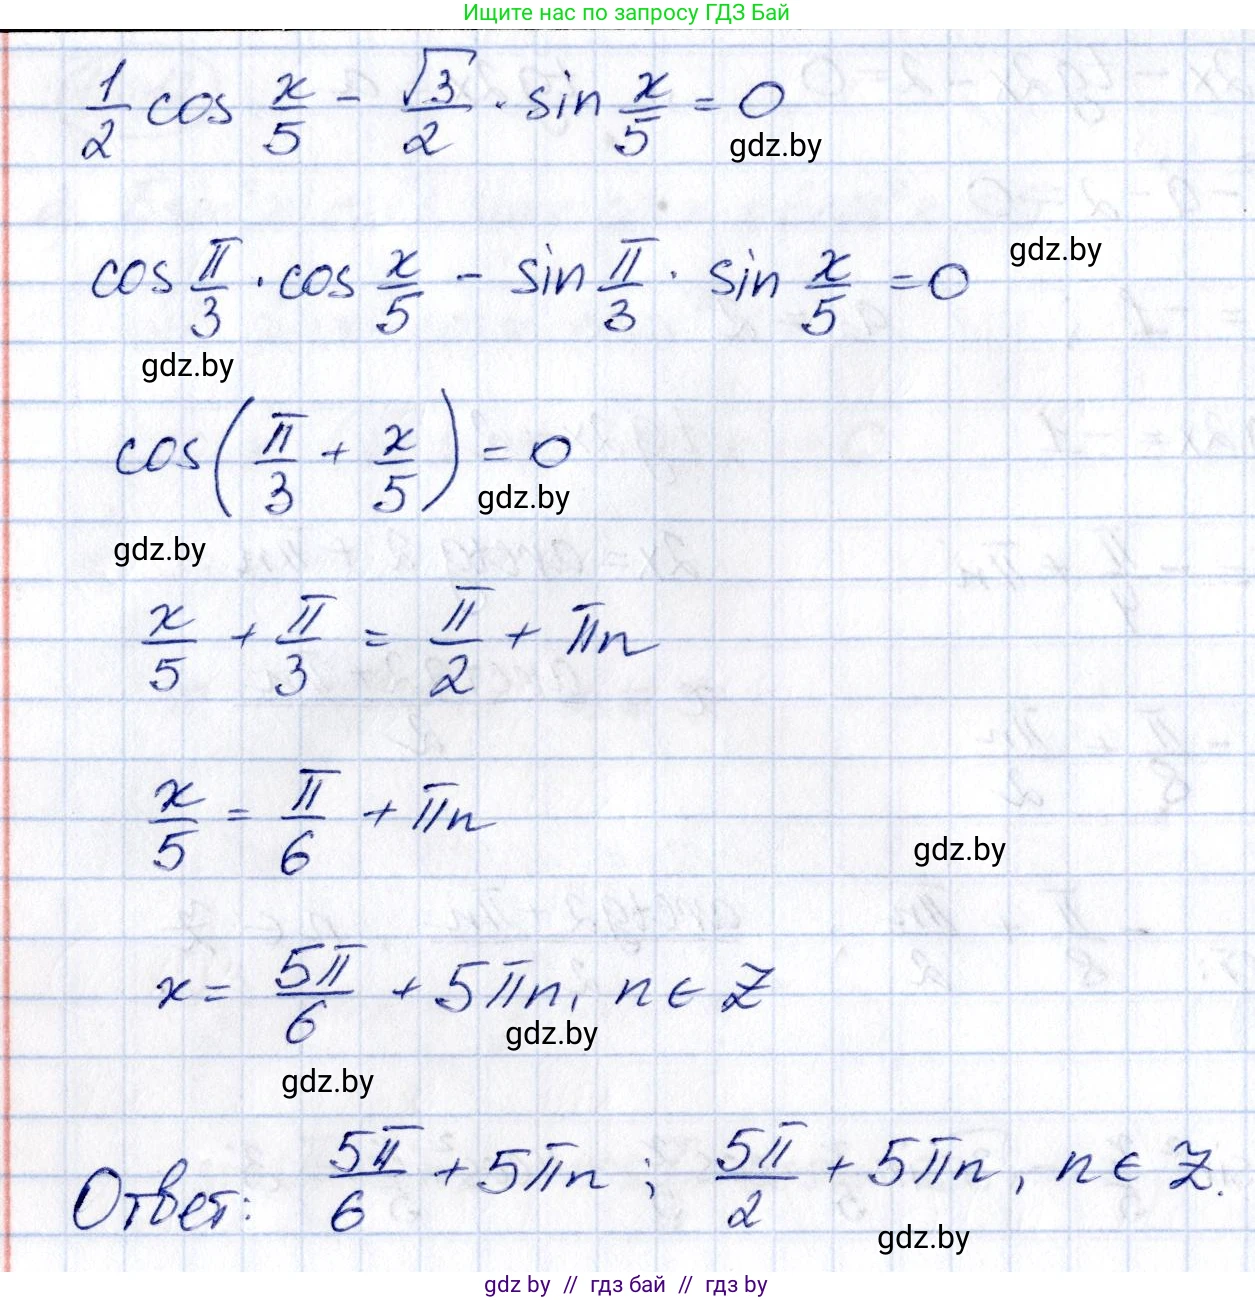 Ищите нас по запросу ГДЗ Бай
1/2 cos x/5 - √3/2 · sin x/5 = 0
gdz.by
gdz.by
cos π/3 · cos x/5 - sin π/3 · sin x/5 = 0
gdz.by
cos(π/3 + x/5) = 0
gdz.by
gdz.by
x/5 + π/3 = π/2 + πn
x/5 = π/6 + πn
gdz.by
x = 5π/6 + 5πn, n ∈ Z
gdz.by
gdz.by
Ответ: 5π/6 + 5πn ; 5π/2 + 5πn, n ∈ Z.
gdz.by
gdz by // гдз бай // гдз by